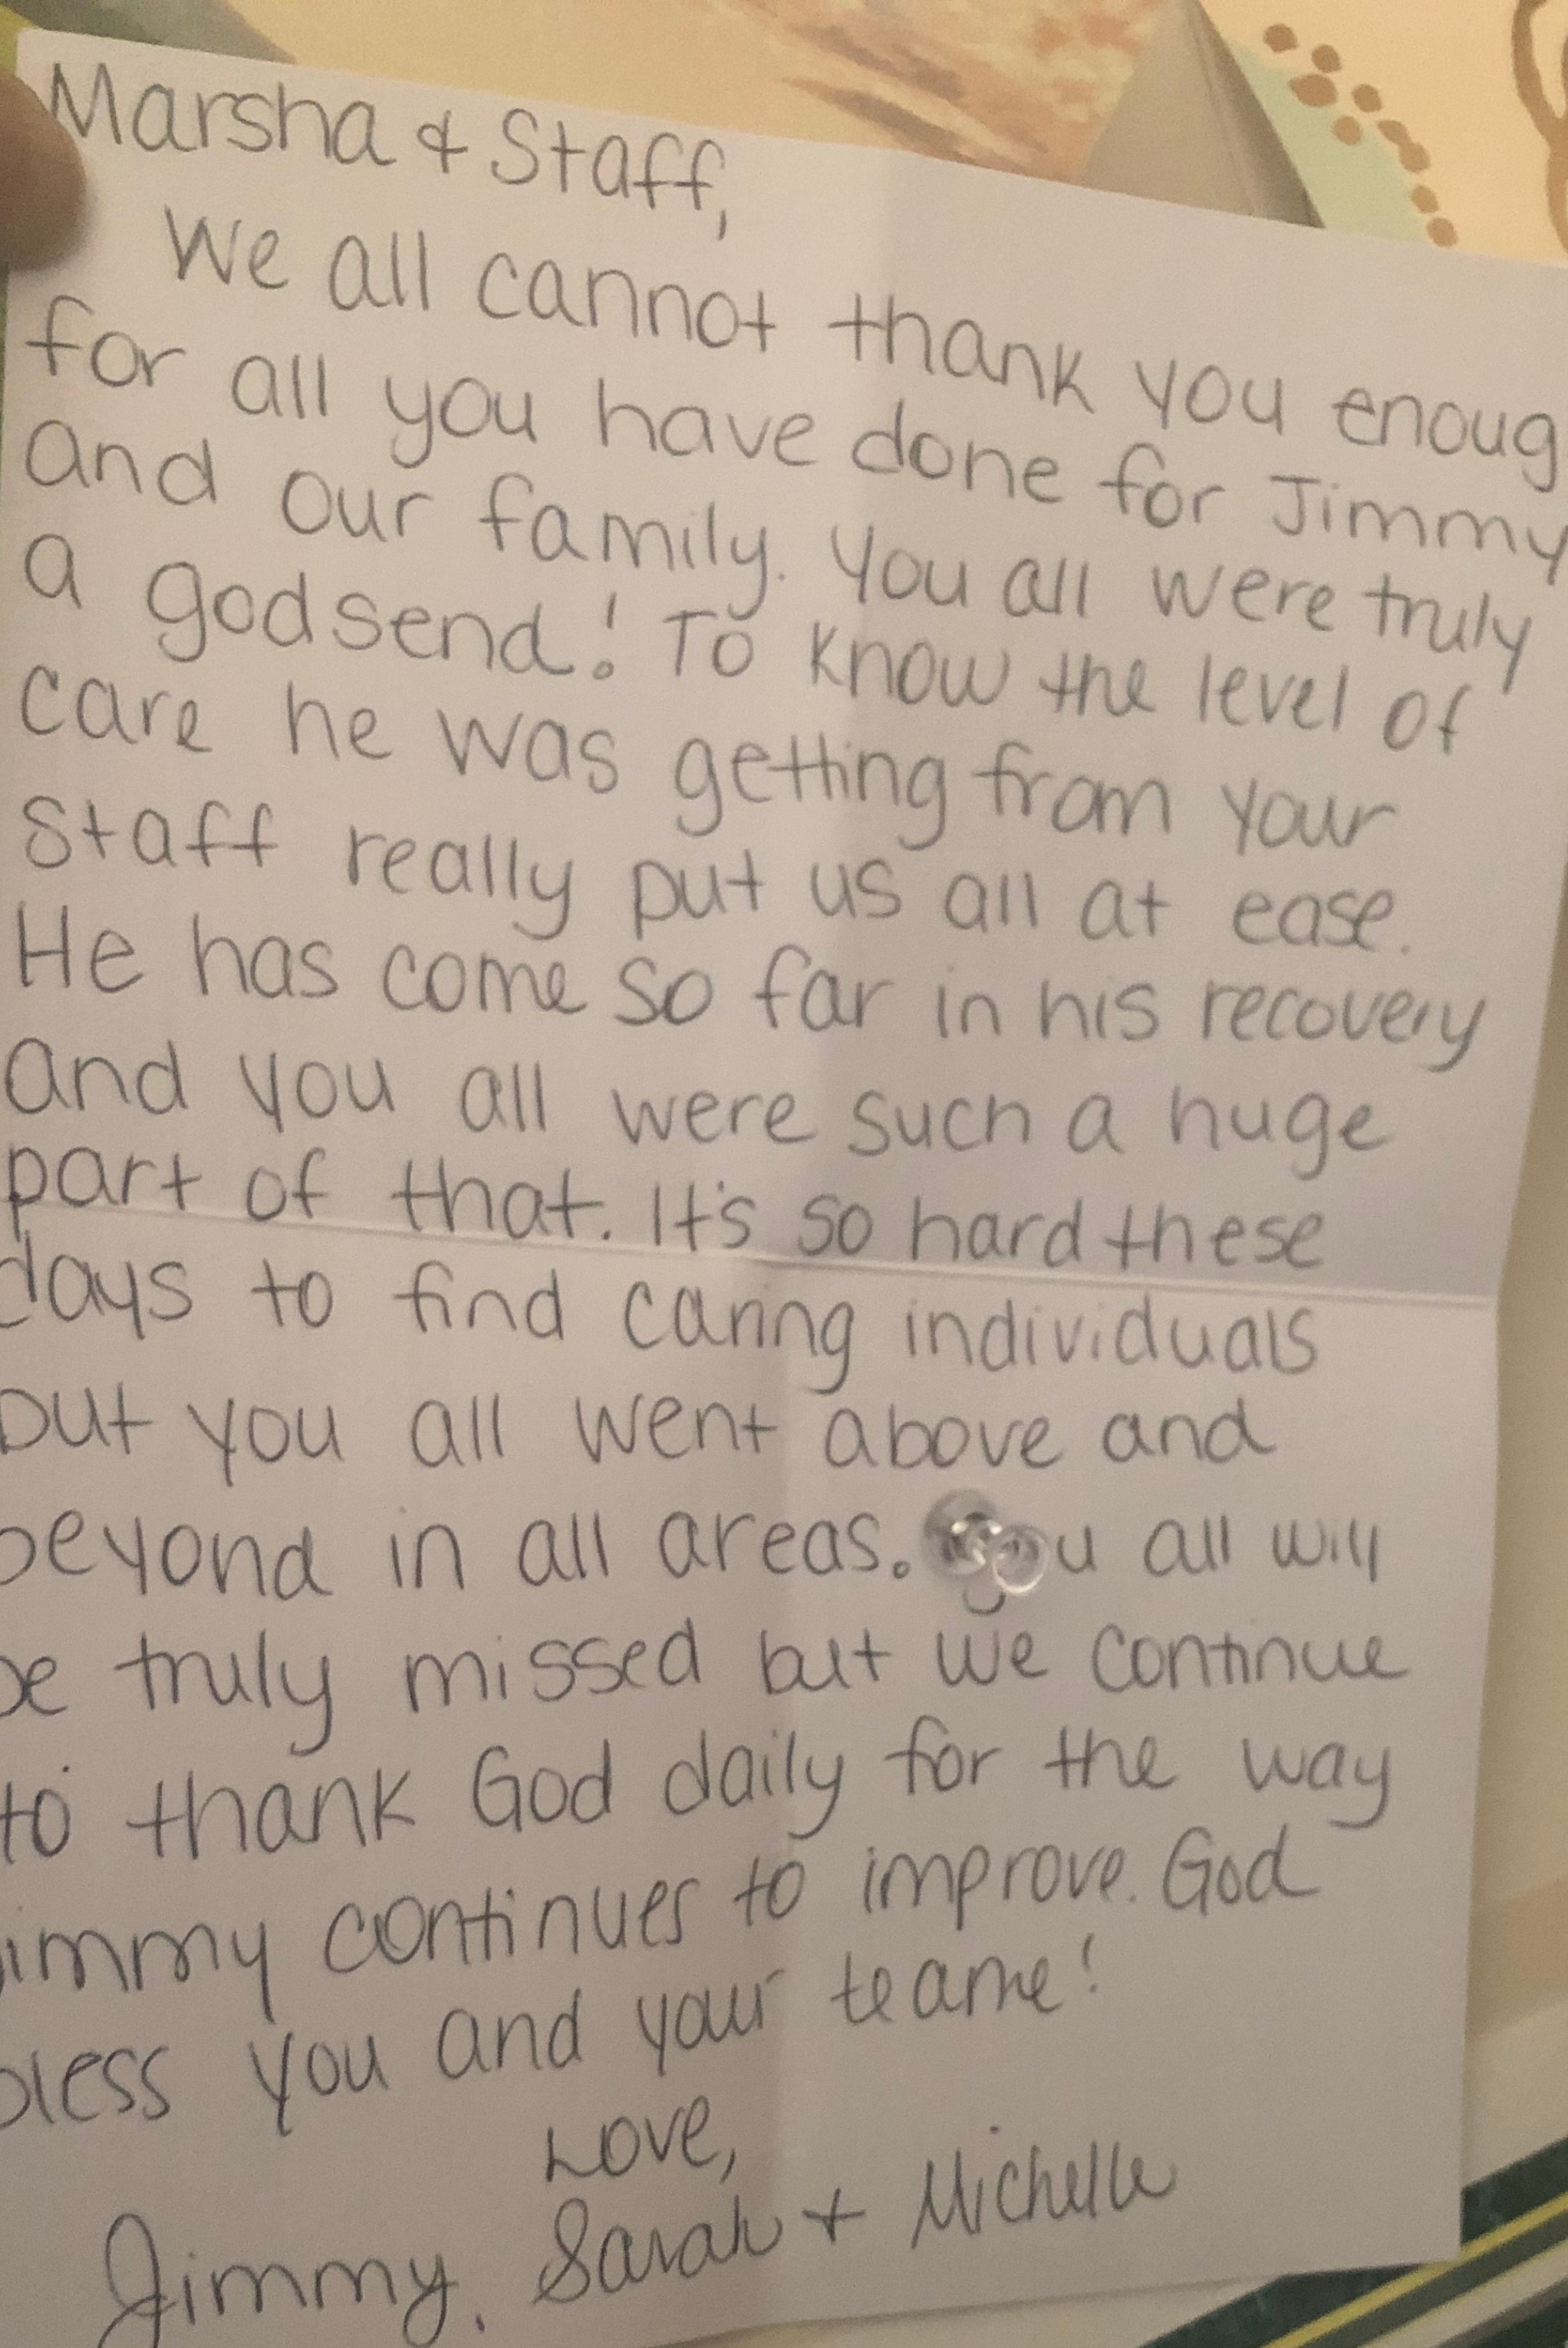 Marsha & Staff,
We all cannot thank you enoug
for all you have done for Jimmy
and our family. You all were truly
a godsend! To know the level of
care he was getting from your
staff really put us all at ease.
He has come so far in his recovery
and you all were such a huge
part of that. It's so hard these
days to find caring individuals
but you all went above and
beyond in all areas. You all will
be truly missed but we continue
to thank God daily for the way
Jimmy continues to improve. God
bless you and your teame!
Love,
Jimmy, Sarah + Michelle